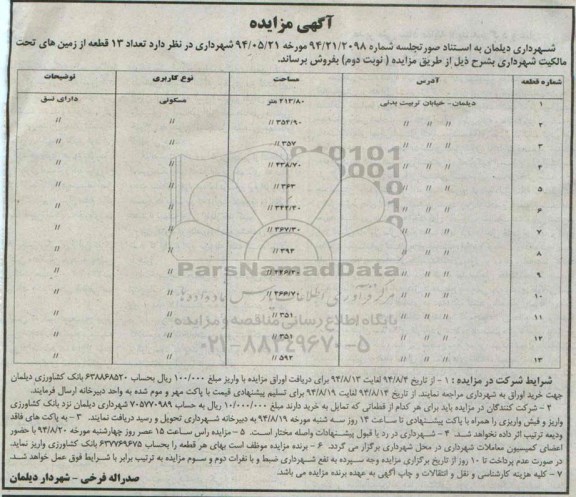 آگهی مزایده
شهرداری دیلمان به استناد صورتجلسه شماره ۹۴/۲۱/۲۰۹۸ مورخه ۹۴/۰۵/۲۱ شهرداری در نظر دارد تعداد ۱۳ قطعه از زمین های تحت
مالکیت شهرداری بشرح ذیل از طریق مزایده ( نوبت دوم) بفروش برساند.
شماره قطعه آدرس مساحت نوع کاربری توضیحات
۱ دیلمان- خیابان تربیت بدنی ۲۱۳/۸۰ متر مسکونی دارای نسق
۲ // // // ۳۵۴/۹۰ // // //
۳ // // // ۳۵۷ // // //
۴ // // // ۴۳۸/۷۰ // // //
۵ // // // ۳۶۳ // // //
۶ // // // ۳۴۴/۴۰ // // //
۷ // // // ۳۶۷/۳۰ // // //
۸ // // // ۳۹۲ // // //
۹ // // // // // //
۱۰ // // // ۴۶۶/۷۰ // // //
۱۱ // // // ۳۵۱ // // //
۱۲ // // // ۳۵۱ // // //
۱۳ // // // ۵۹۲ // // //
ParsNamadData
پایگاه اطلاع رسانی مناقصه و مزایده
۰۲۱-۸۸۳۴۹۶۷۰-۵
شرایط شرکت در مزایده : ۱ - از تاریخ ۹۴/۸/۴ لغایت ۹۴/۸/۱۳ برای دریافت اوراق مزایده با واریز مبلغ ۱۰۰/۰۰۰ ریال بحساب ۶۳۸۸۶۸۵۲۰ بانک کشاورزی دیلمان
جهت خرید اوراق به شهرداری مراجعه نمایند. از تاریخ ۹۴/۸/۱۴ لغایت ۹۴/۸/۱۹ برای تسلیم پیشنهادی قیمت با پاکت مهر و موم شده به واحد دبیرخانه ارسال فرمایند.
۲ - شرکت کنندگان در مزایده باید برای هر کدام از قطعاتی که تمایل به خرید دارند مبلغ ۱۰/۰۰۰/۰۰۰ ریال به حساب ۷۰۵۷۷۰۹۸۹ شهرداری دیلمان نزد بانک کشاورزی
واریز و فیش واریزی را همراه با پاکت پیشنهادی تا ساعت ۱۴ روز سه شنبه مورخه ۹۴/۸/۱۹ به دبیرخانه شهرداری تحویل و رسید دریافت نمایند. ۳ - به پاکت های فاقد
ودیعه ترتیب اثر داده نخواهد شد. ۴ - شهرداری در رد یا قبول پیشنهادات واصله مختار است. ۵ - مزایده راس ساعت ۱۵ عصر روز چهارشنبه مورخه ۹۴/۸/۲۰ با حضور
اعضای کمیسیون معاملات شهرداری در محل شهرداری برگزار می گردد. ۶ - برنده مزایده موظف است بهای هر قطعه را بحساب ۶۳۷۷۶۹۶۷۵ بانک کشاورزی واریز نماید.
در صورت عدم پرداخت تا ۱۰ روز از تاریخ برگزاری مزایده وجه سپرده به نفع شهرداری ضبط و با نفرات دوم و سوم مزایده به ترتیب برابر با شرایط فوق عمل خواهد شد.
۷ - کلیه هزینه کارشناسی و نقل و انتقالات و چاپ آگهی به عهده برنده مزایده می باشد.
صدراله فرخی - شهردار دیلمان